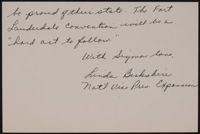 be proud of their state. The Fort
Lauderdale Convention will be a
"hard act to follow"
With Sigma love,
Linda Berkshire
Nat'l Vice Pres. Expansion